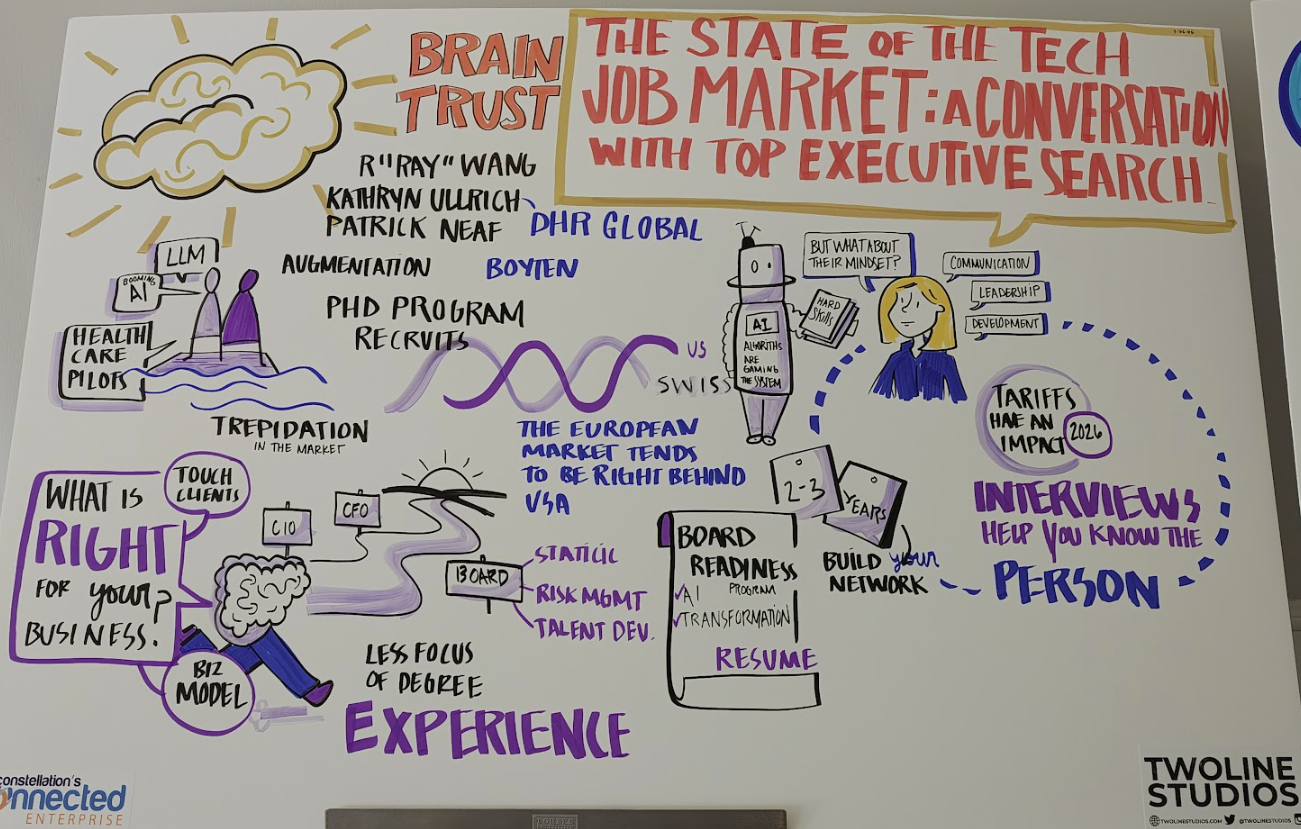 BRAIN
TRUST
THE STATE OF THE TECH
JOB MARKET: A CONVERSATION
WITH TOP EXECUTIVE SEARCH
R "RAY" WANG
KATHRYN ULLRICH
PATRICK NEAF
DHR GLOBAL
BOYTEN
LLM
BOOMING
AI
HEALTH
CARE
PILOTS
AUGMENTATION
PHD PROGRAM
RECRUITS
TREPIDATION
IN THE MARKET
US
SWISS
THE EUROPEAN
MARKET TENDS
TO BE RIGHT BEHIND
USA
AI
ALGORITHS
ARE
GAMING
THE SYSTEM
HARD
SKILLS
BUT WHAT ABOUT
THEIR MINDSET?
COMMUNICATION
LEADERSHIP
DEVELOPMENT
TARIFFS
HAE AN
IMPACT
2026
INTERVIEWS
HELP YOU KNOW THE
PERSON
2-3
YEARS
BUILD your
NETWORK
BOARD
READINESS
PROGRAM
AI
TRANSFORMATION
RESUME
WHAT IS
RIGHT
FOR your
BUSINESS?
TOUCH
CLIENTS
BIZ
MODEL
CIO
CFO
BOARD
RISK MGMT
TALENT DEV.
LESS FOCUS
OF DEGREE
EXPERIENCE
constellation's
onnected
ENTERPRISE
TWOLINE
STUDIOS
TWOLINESTUDIOS.COM @TWOLINESTUDIOS